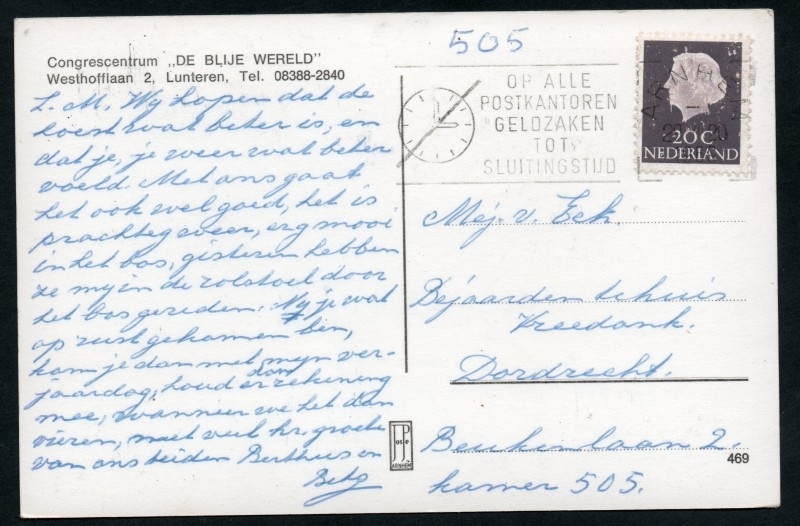 505
Congrescentrum „DE BLIJE WERELD"
Westhofflaan 2, Lunteren, Tel. 08388-2840
L. M. Wy hopen dat de
hoest wat beter is, en
dat je, je weer wat beter
voeld. Met ons gaat
het ook wel goed, het is
prachteg weer, erg mooi
in het bos, gisteren hebben
ze my in de rolstoel door
het bos gereden. Ny je wat
op rust gekomen ben,
kom je dan met myn ver-
jaardag, houd er dan rekening
mee, wanneer we het dan
vieren, met veel hr. groete
van ons beiden Berthus en
Bets
OP ALLE
POSTKANTOREN
GELDZAKEN
TOT
SLUITINGSTIJD
ARNHEM
20C
NEDERLAND
Mej. v. Eck.
Bejaarden tehuis
Vreedonk.
Dordrecht.
Beukenlaan 2.
kamer 505.
JosPé
ARNHEM
469